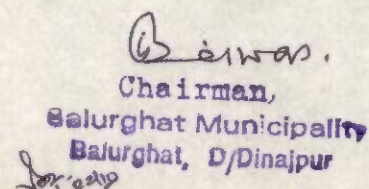 Biswas.
Chairman,
Balurghat Municipality
Balurghat, D/Dinajpur